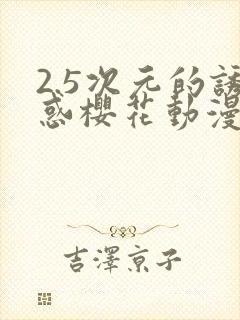 2.5次元的誘
惑櫻花動漫
吉澤京子